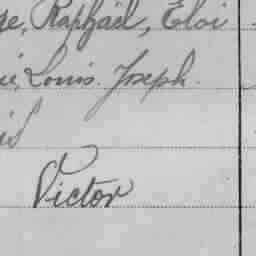 Raphaël, Éloi
Louis. Joseph.
Victor